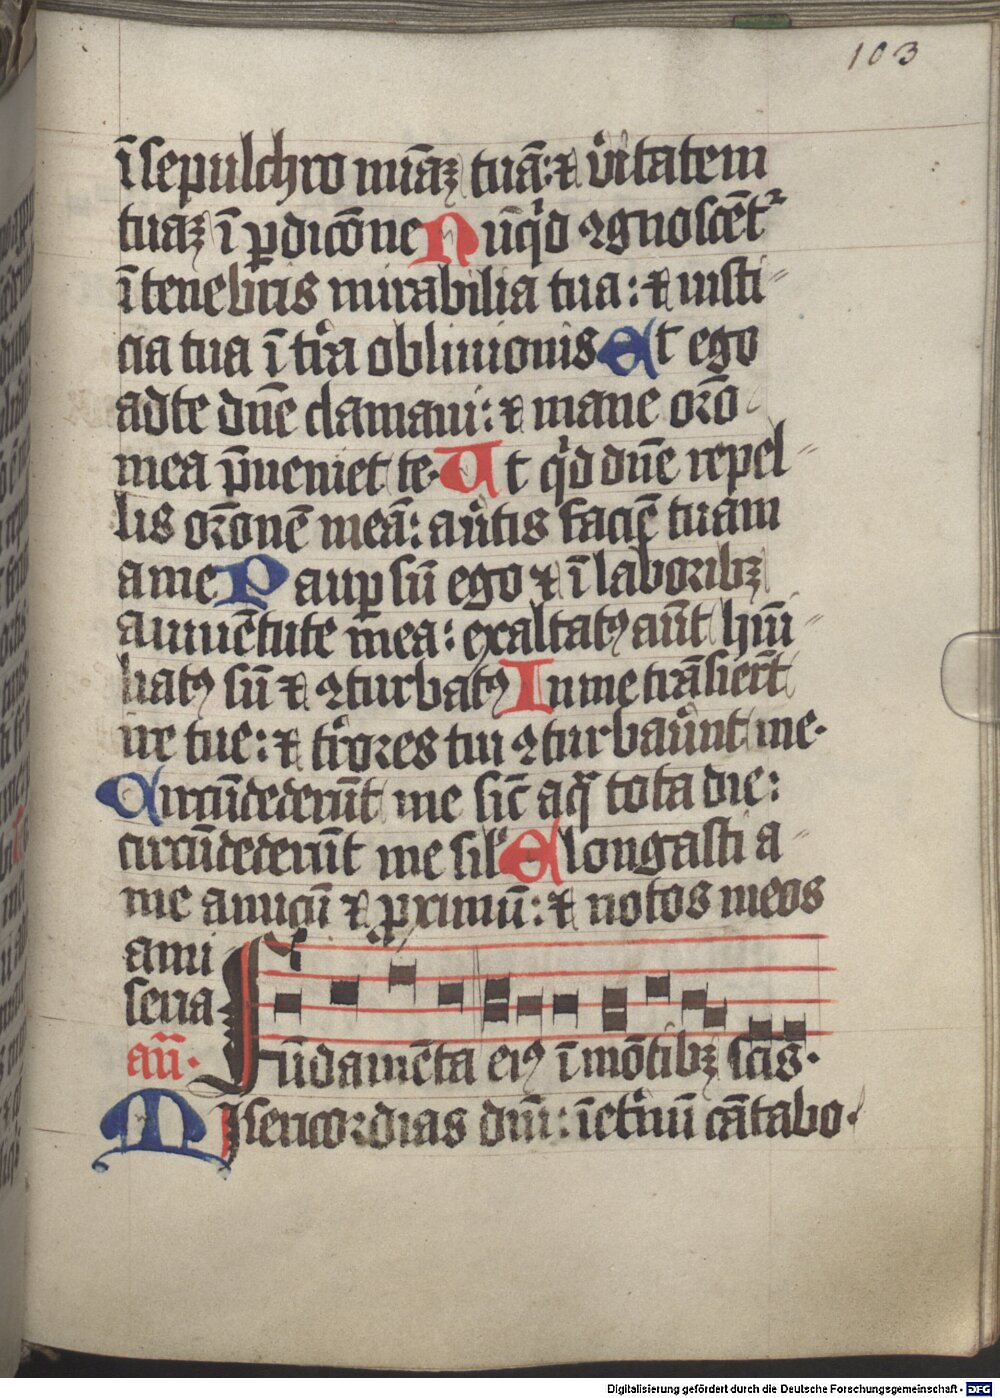 103
ī sepulchro mīaꝫ tuā: ⁊ v̾itatem
tuaꝫ ī ꝑdicōne Nūqͥd ꝯgnoscēt᷑
ī tenebris mirabilia tua: ⁊ iusti
cia tua ī t̾ra obliuionis Et ego
ad te dn̄e clamaui: ⁊ mane orō
mea p̄ueniet te. Ut qͥd dn̄e repel
lis orōnē meā: au̾tis faciē tuam
a me Paup̱ sū ego ⁊ ī laboribꝫ
a iuuētute mea: exaltatꝰ aūt hūi
liatꝰ sū ⁊ ꝯturbatꝰ In me trāsier̄t
ire tue: ⁊ t̾rores tui ꝯturbau̾unt me.
Circūdederūt me sic̄ aq̄ tota die:
circūdederūt me sil̾ Elongasti a
me amicū ⁊ ꝓximū: ⁊ notos meos
a mi
seria
an̄.
Fūdamēta eiꝰ ī mōtibꝫ sc̄is.
Misericordias dn̄i: ī et̾nū cātabo.
Digitalisierung gefördert durch die Deutsche Forschungsgemeinschaft - DFG